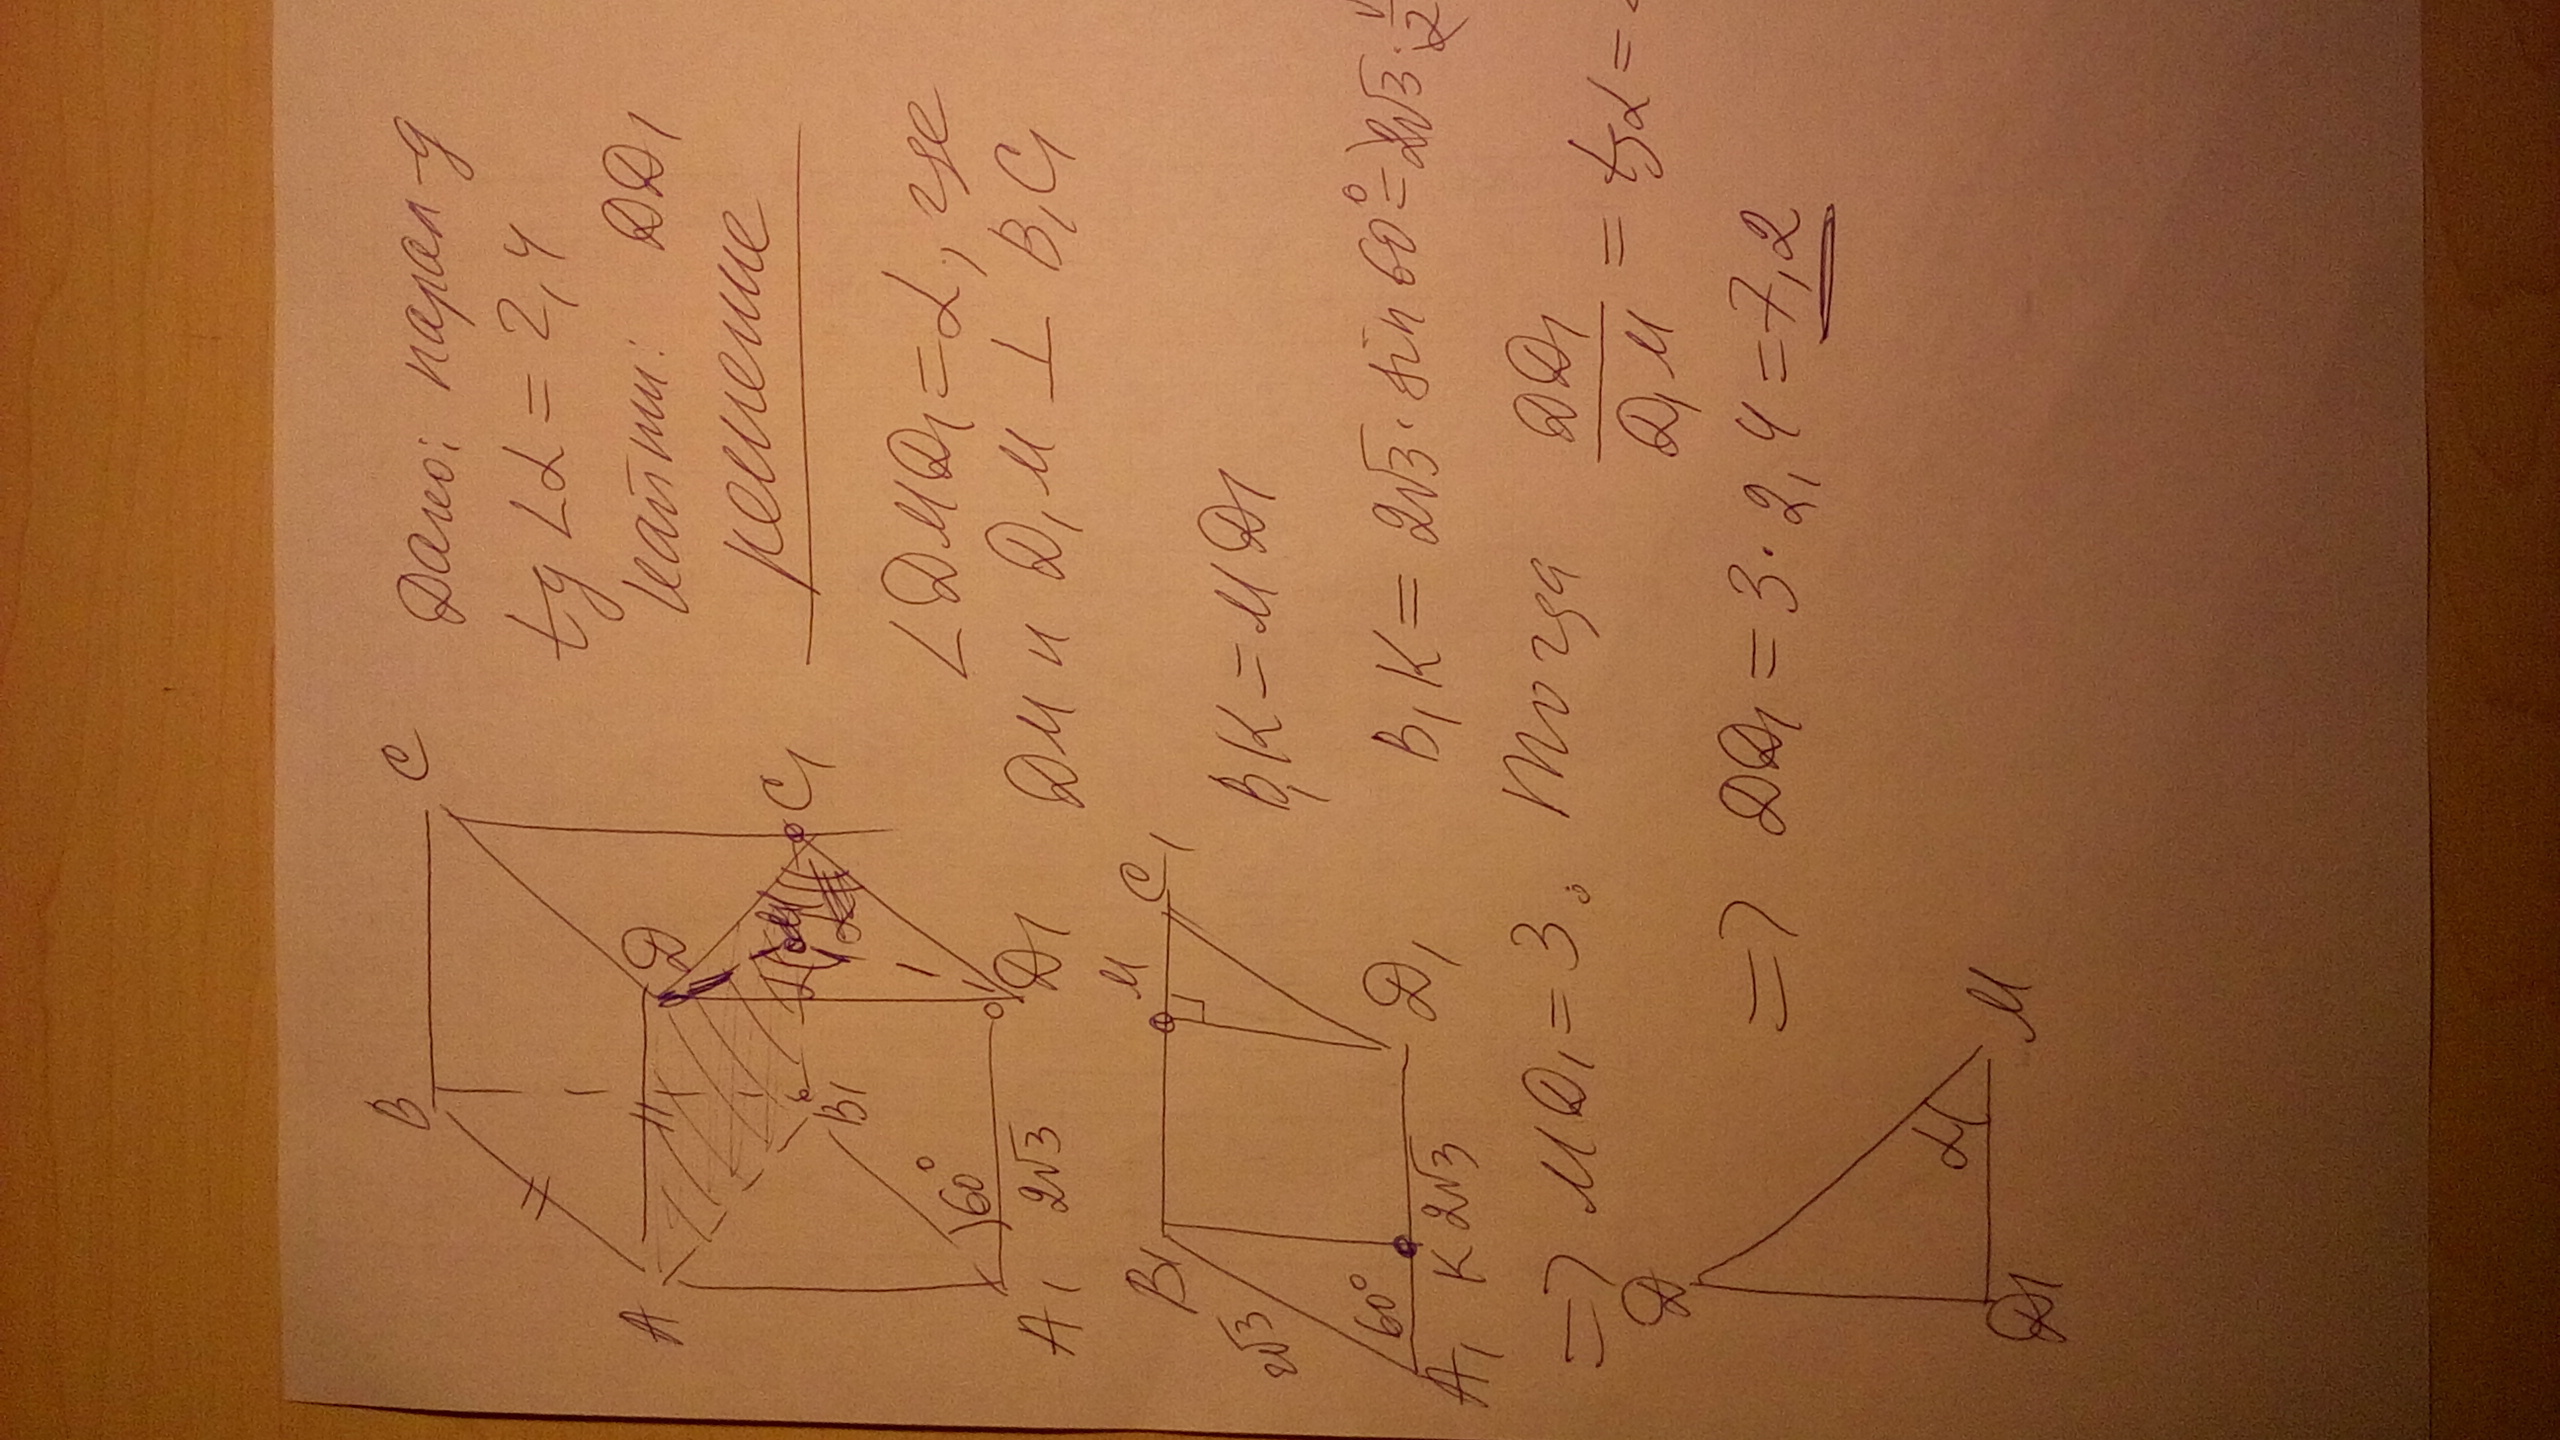 Дано: парал-д
tg ∠α = 2,4
Найти: DD1
Решение
∠DMD1 = α, где
DM и D1M ⊥ B1C1
B1K = MD1
B1K = 2√3 · sin 60° = 2√3 ·
=> MD1 = 3. Тогда DD1/D1M = tg α =
=> DD1 = 3 · 2,4 = 7,2
B
C
A
D
M
α
C1
B1
60°
D1
A1
2√3
B1
M
C1
2√3
60°
A1
K
2√3
D1
D
α
D1
M